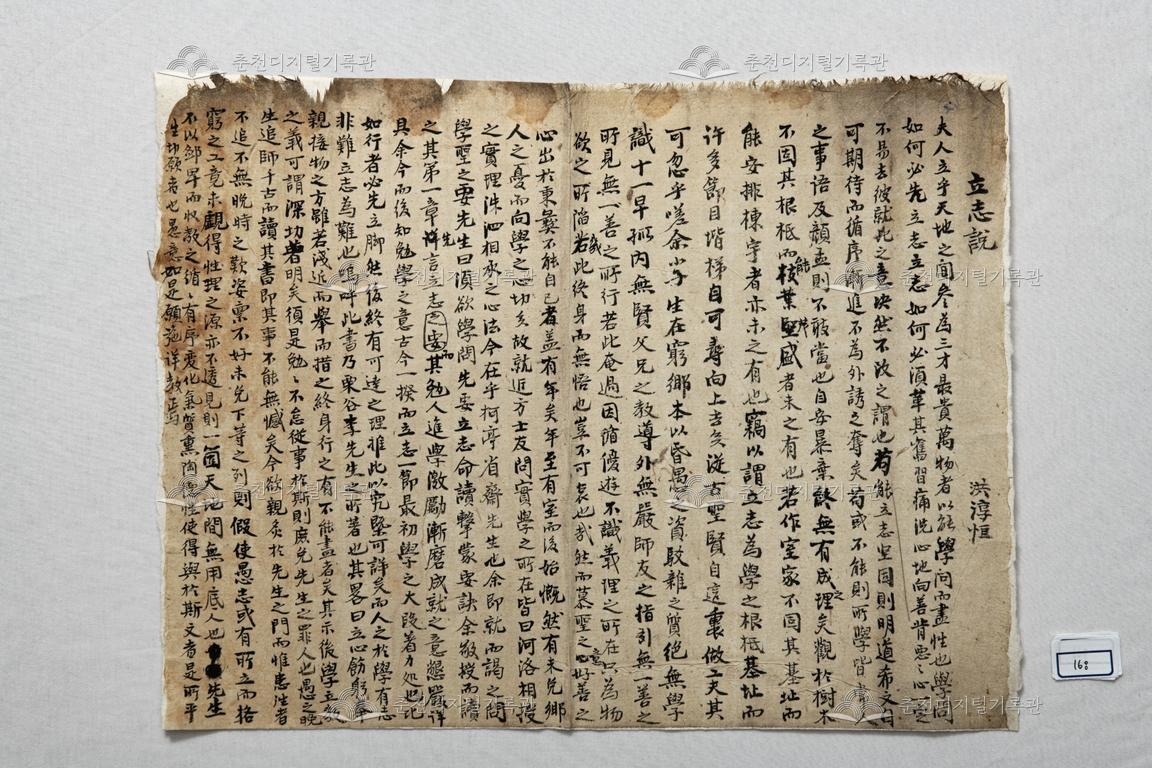 立志說
洪淳恒
夫人立乎天地之間參爲三才最貴萬物者以能學問而盡性也學問
如何必先立志立志如何必須革其舊習痛洗心地向善背惡之心
不易去彼就此之意決然不改之謂也苟能立志堅固則明道希文自
可期待而循序漸進不爲外誘之奪矣苟或不能則所學皆
之事語及顔孟則不敢當也自安暴棄終無有成之理矣觀於樹木
不固其根柢而能枝葉堅盛者未之有也若作室家不固其基址而
能安排棟宇者亦未之有也竊以謂立志爲學之根柢基址而
許多節目階梯自可尋向上去矣從古聖賢自這裏做工夫其
可忽乎嗟余小子生在窮鄉本以昏愚之資駁雜之質絶無學
識十一早孤內無賢父兄之教導外無嚴師友之指引無一善之
所見無一善之所行若此奄過因循優遊不識義理之所在只爲物
欲之所陷若此終身而無悟也豈不可哀也哉然而慕聖之心好善之意
心出於秉彝不能自已者盖有年矣年至有室而後始慨然有未免鄉
人之憂而向學之心切矣故就近方士友問實學之所在皆曰河洛相授
之實理洙泗相承之心法今在乎柯亭省齋先生也余即就而謁之問
學聖之要先生曰須欲學問先要立志命讀擊蒙要訣余敬授而讀
之其第一章先詳言立志之要而其勉人進學激勵漸磨成就之意懇嚴詳
具余今而後知勉學之意古今一揆而立志一節最初學之大段著力処也記
如行者必先立脚然後終有可達之理推此以究槩可詳矣而人之於學有志
非難立志爲難也嗚呼此書乃栗谷李先生之所著也其畧曰立心飭躬奉
親接物之方雖若淺近而擧而措之終身行之有不能盡者矣其示後學立教
之義可謂深切著明矣須是勉勉不怠從事於斯則庶免先生之罪人也愚之晚
生追師千古而讀其書即其事不能無憾矣今欲親炙於先生之門而惟患性者
不追不無晩時之歎姿稟不好未免下等之列則假使愚志或有所立而格
窮之工竟未覩得性理之源亦不透見則一箇天地間無用底人也先生
不以鄙卑而收教之循循有序變化氣質熏陶德性使得與於斯文者是所平
生切願者也愚意如是願施詳教焉
168
춘천디지털기록관
춘천디지털기록관
춘천디지털기록관
춘천디지털기록관
춘천디지털기록관
춘천디지털기록관
춘천디지털기록관
춘천디지털기록관